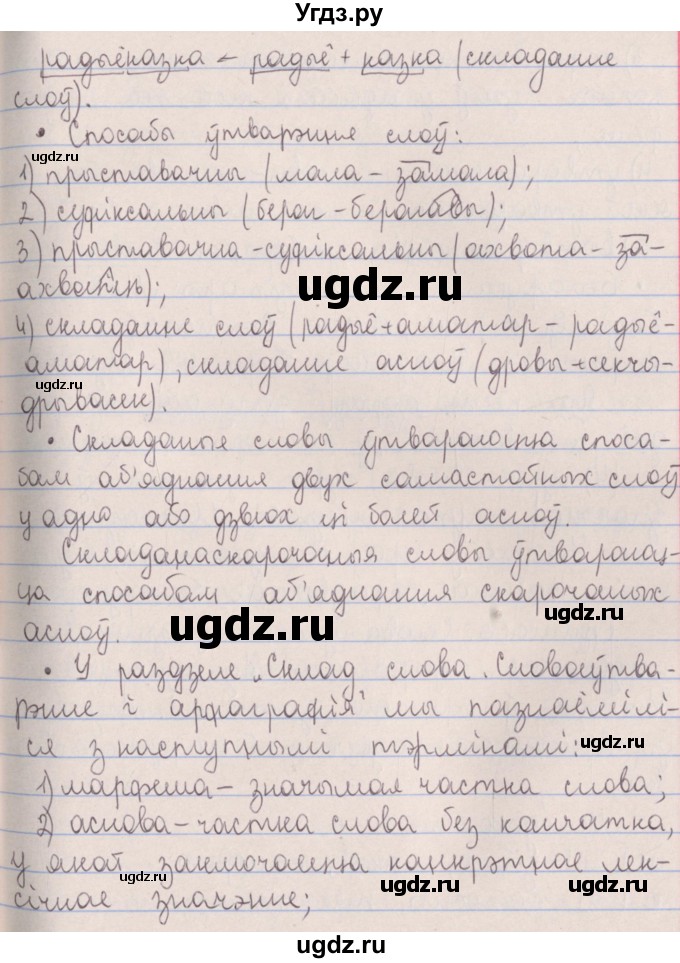 Угдз.ру
радыёказка ← радыё + казка (складанне
слоў).
• Спосабы ўтварэння слоў:
ugdz.ru
1) прыставачны (мала - замала);
ugdz.ru
2) суфіксальны (Берон - );
3) прыставачна-суфіксальны (ахвота - за-
ахвоціць);
ugdz.ru
4) складанне слоў (радыё+аматар - радыё-
аматар), складанне асноў (дровы+секчы-
ugdz.ru
дрывасек).
• Складаныя словы ўтвараюцца спосa-
бам аб'яднання двух самастойных слоў
у адно або дзвюх ці болей асноў.
Складанаскарочаныя словы ўтвараюц-
ца спосабам аб'яднання скарочаных
ugdz.ru
асноў.
ugdz.ru
• У раздзеле „Склад слова. Словаўтва-
рэнне і арфаграфія" мы пазнаёмілі-
ся з наступнымі тэрмінамі:
ugdz.ru
1) марфема - значымая частка слова;
2) аснова - частка слова без канчатка,
у якой заключаецца канкрэтнае лек-
ugdz.ru
ugdz.ru
ugdz.ru
січнае значэнне;
ugdz.ru